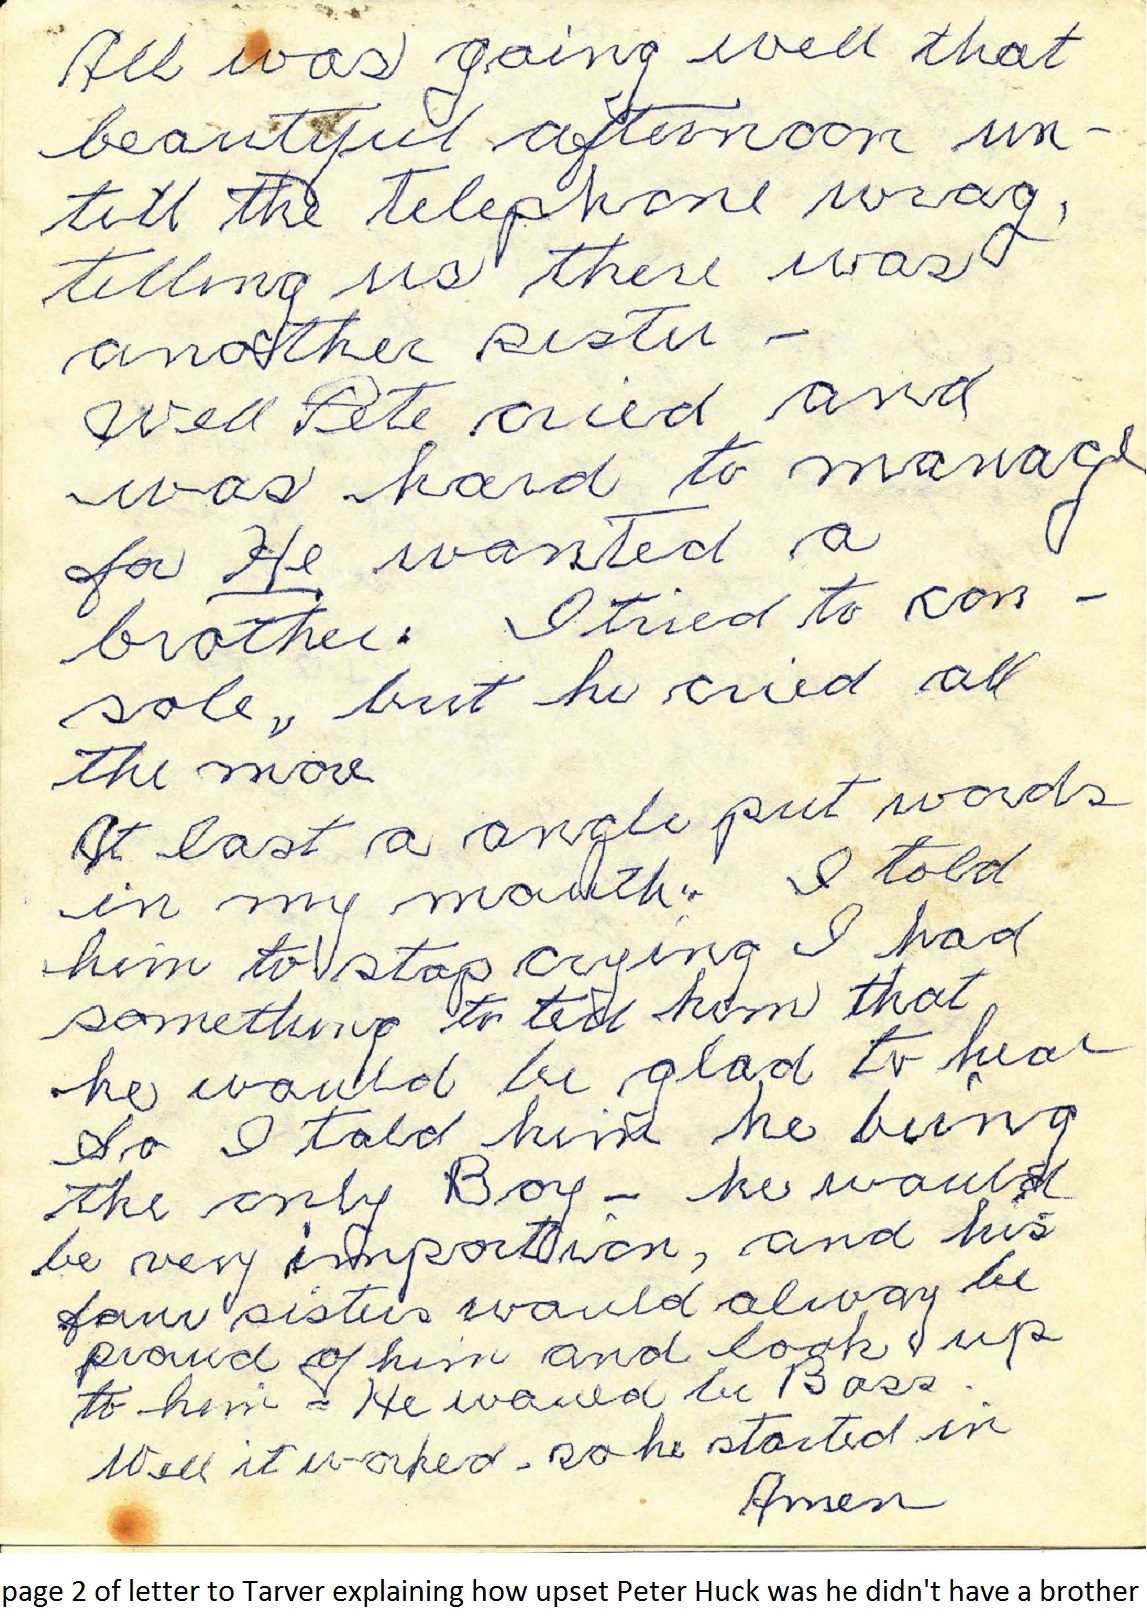 All was going well that
beautyful afternoon un-
till the telephone wrag,
telling us there was
another sister -
Well Pete cried and
was hard to manage
for He wanted a
brother. I tried to con-
sole, but he cried all
the more
At last a angle put words
in my mouth. I told
him to stop crying I had
something to tell him that
he would be glad to hear
So I told him he being
the only Boy - he would
be very importian, and his
four sisters would alway be
proud of him and look up
to him - He would be Boss.
Well it worked - so he started in
Amen
page 2 of letter to Tarver explaining how upset Peter Huck was he didn't have a brother